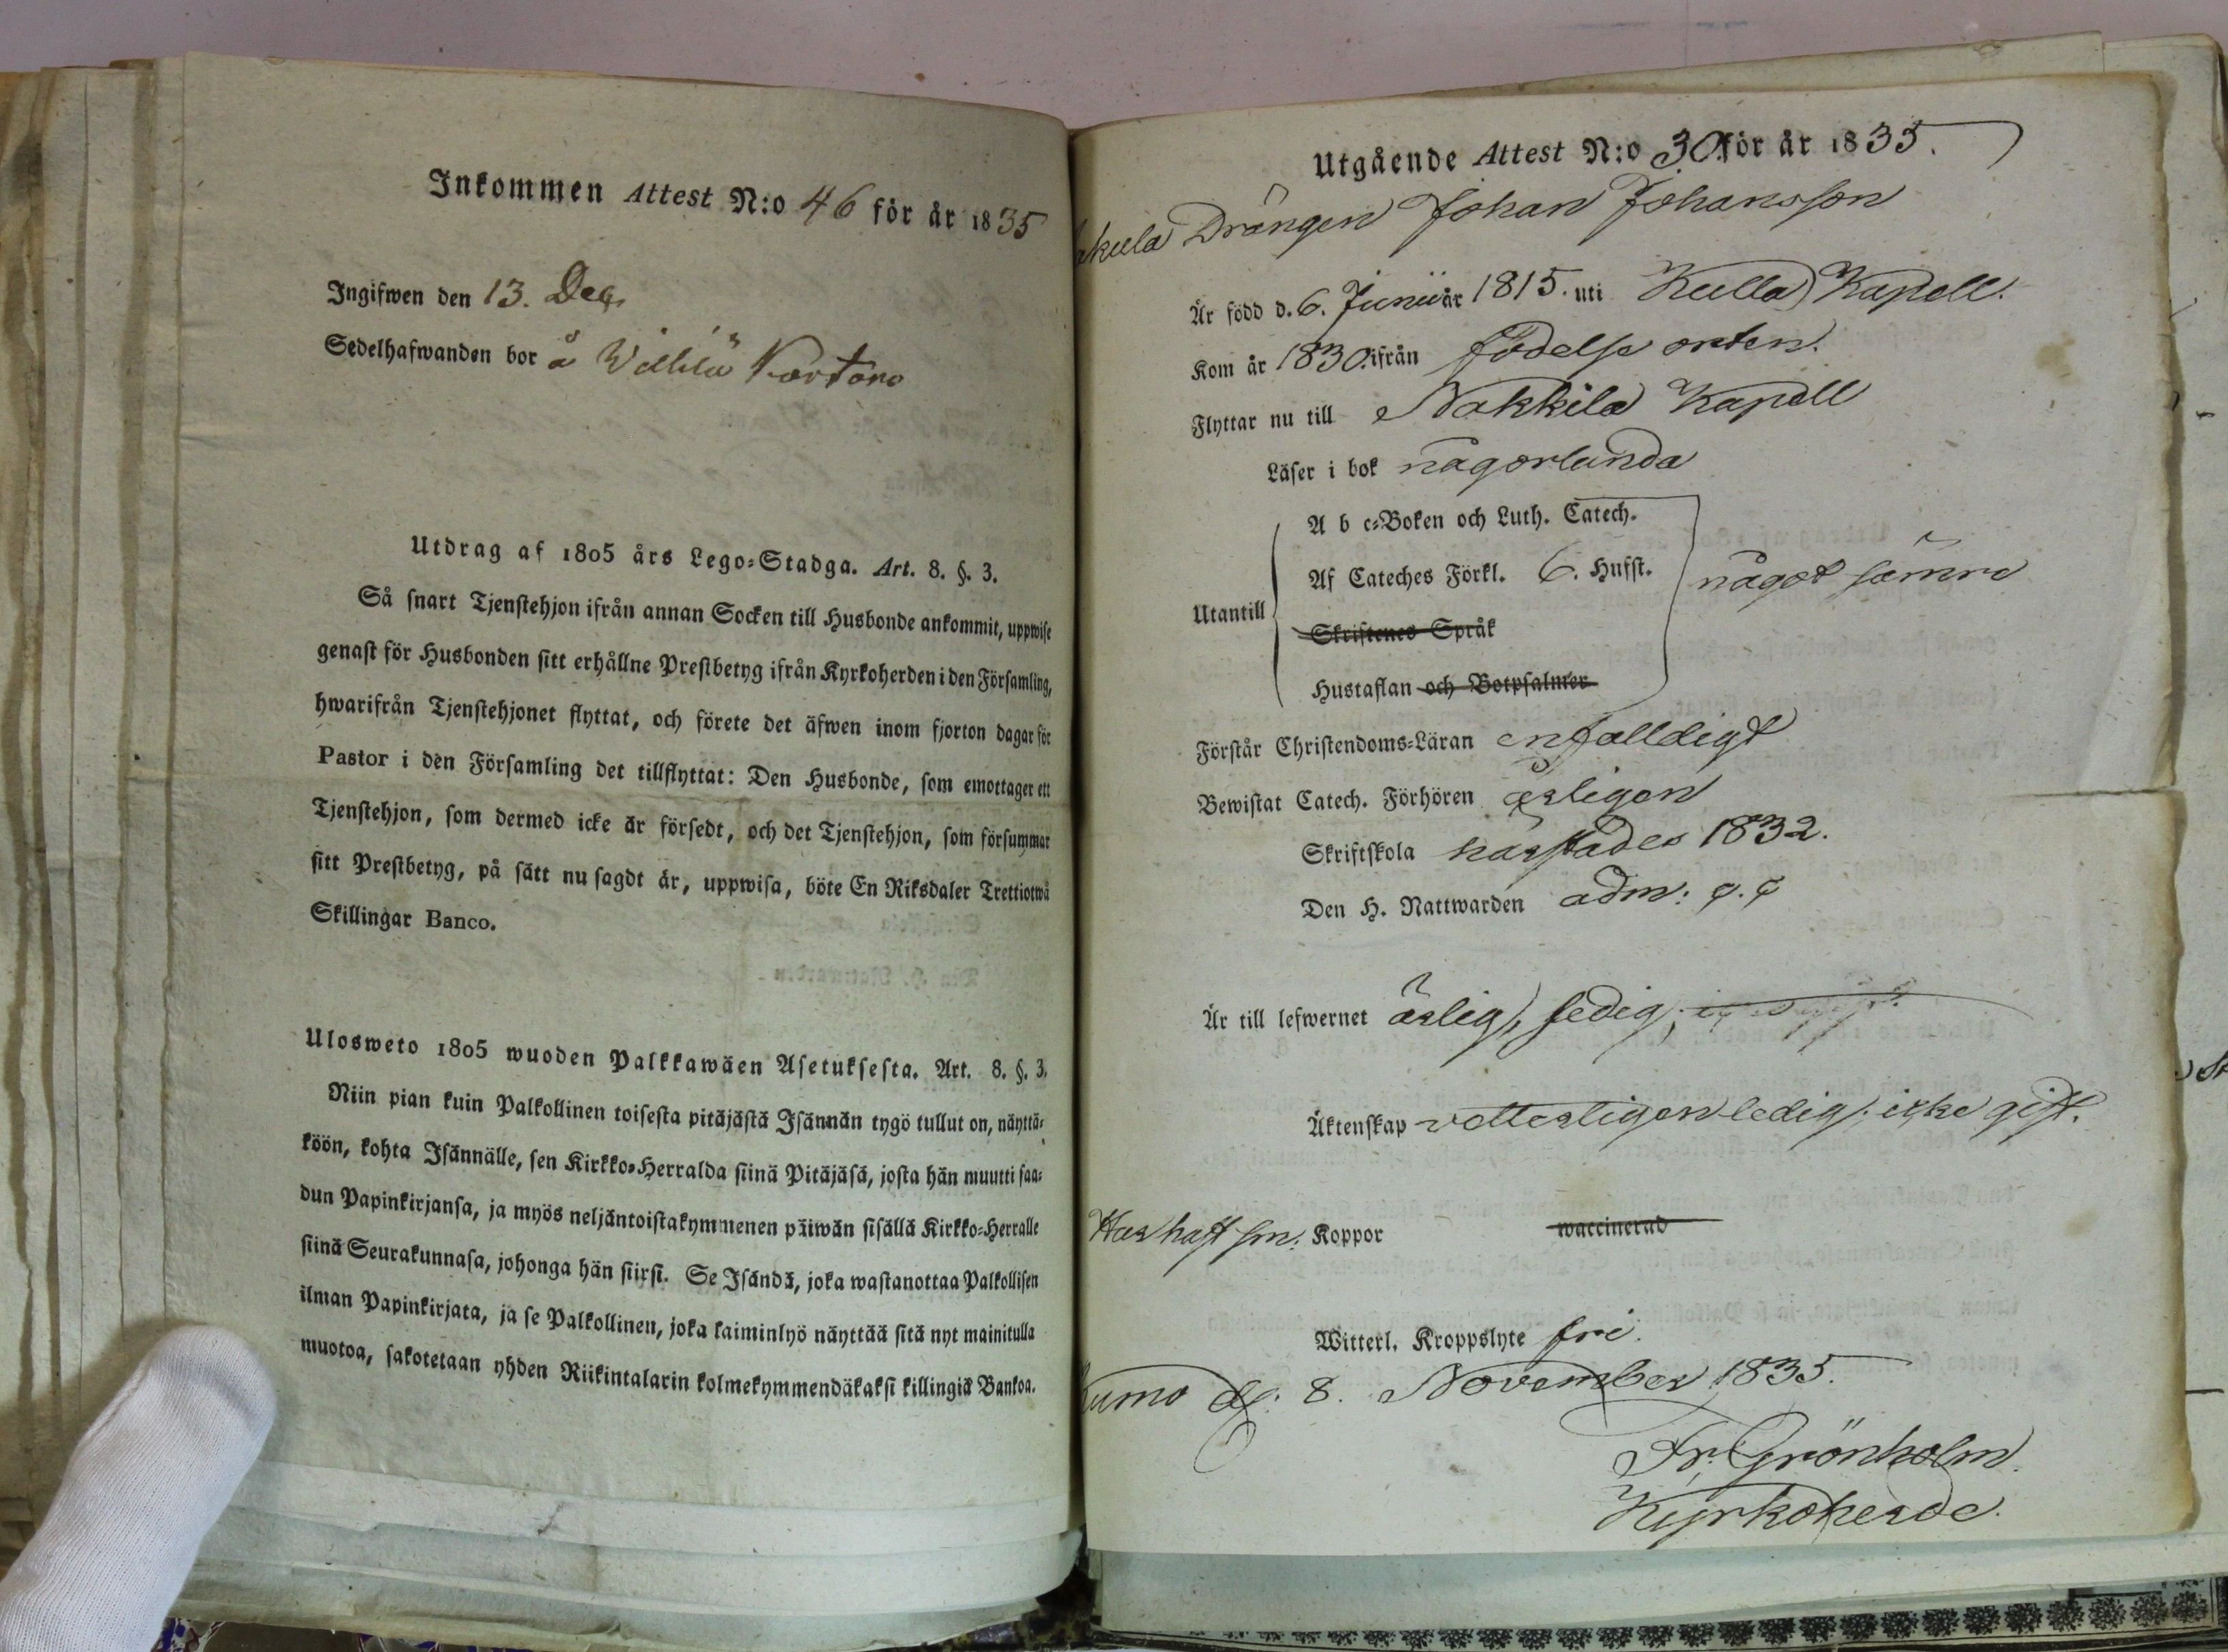 Inkommen Attest N:o 46 för år 1835
Ingifwen den 13. Dec.
Sedelhafwanden bor å
Utdrag af 1805 års Lego-Stadga. Art. 8. §. 3.
Så snart Tjenstehjon ifrån annan Socken till Husbonde ankommit, uppwise
genast för Husbonden sitt erhållne Prestbetyg ifrån Kyrkoherden i den Församling,
hwarifrån Tjenstehjonet flyttat, och förete det äfwen inom fjorton dagar för
Pastor i den Församling det tillflyttat: Den Husbonde, som emottager ett
Tjenstehjon, som dermed icke är försedt, och det Tjenstehjon, som försummar
sitt Prestbetyg, på sätt nu sagdt är, uppwisa, böte En Riksdaler Trettiotwå
Skillingar Banco.
Ulosweto 1805 wuoden Palkkawäen Asetuksesta. Art. 8. §. 3.
Niin pian kuin Palkollinen toisesta pitäjästä Isännän tygö tullut on, näyttä-
köön, kohta Isännälle, sen Kirkko-Herralda siinä Pitäjäsä, josta hän muutti saa-
dun Papinkirjansa, ja myös neljäntoistakymmenen päiwän sisällä Kirkko-Herralle
siinä Seurakunnasa, johonga hän siirsi. Se Isändä, joka wastanottaa Palkollisen
ilman Papinkirjata, ja se Palkollinen, joka laiminlyö näyttää sitä nyt mainitulla
muotoa, sakotetaan yhden Riikintalarin kolmekymmendäkaksi killingiä Bankoa.
Utgående Attest N:o 30 för år 1835.
Drängen Johan Johansson
Är född d. 6. Junii år 1815. uti Kulla Kapell.
Kom år 1830. ifrån födelse orten.
Flyttar nu till Nakkila Kapell
Läser i bok någorlunda
A b c-Boken och Luth. Catech.
Af Cateches Förkl. 6. Hufst. något sämre
Utantill
Skriftenes Språk
Hustaflan och Botpsalmer
Förstår Christendoms-Läran enfalldigt
Bewistat Catech. Förhören årligen
Skriftskola härstädes 1832.
Den H. Nattwarden adm:
Är till lefwernet ärlig, sedig,
Äktenskap vetterligen ledig, icke gift.
Har haft sm. Koppor waccinerad
Witterl. Kroppslyte fri.
Kumo d. 8. November 1835.
Fr. Grönholm.
Kyrkoherde.